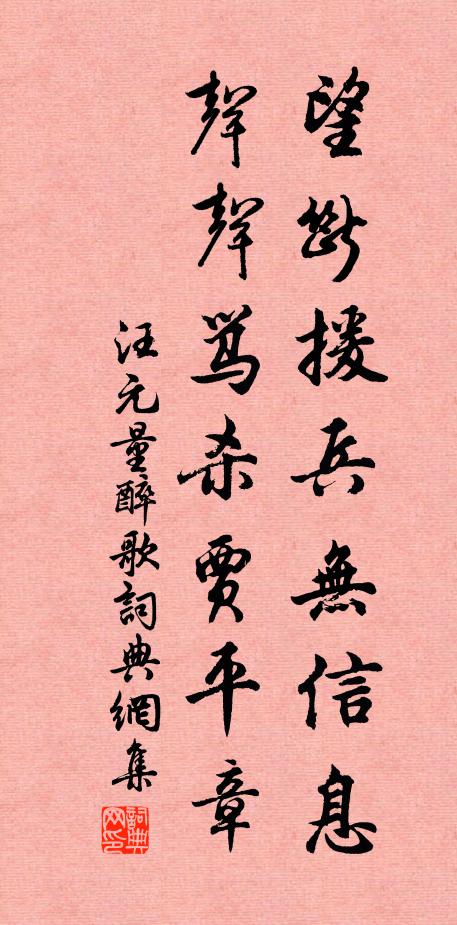 望斷援兵無信息
聲聲骂杀賈平章
汪元量醉歌詞典網集
詞典网印